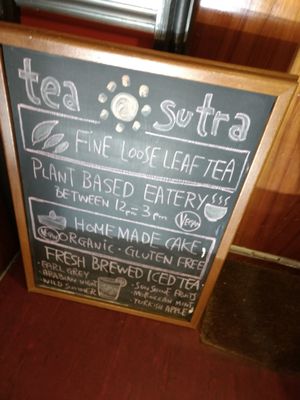 tea sutra
FINE LOOSE LEAF TEA
PLANT BASED EATERY
BETWEEN 12pm-3pm
Vegan
HOMEMADE CAKE,
Vegan
ORGANIC · GLUTEN FREE
FRESH BREWED ICED TEA
· EARL GREY
· ARABIAN NIGHT
· WILD SUMMER
· SUNSHINE FRUITS
· MOROCCAN MINT
· TURKISH APPLE